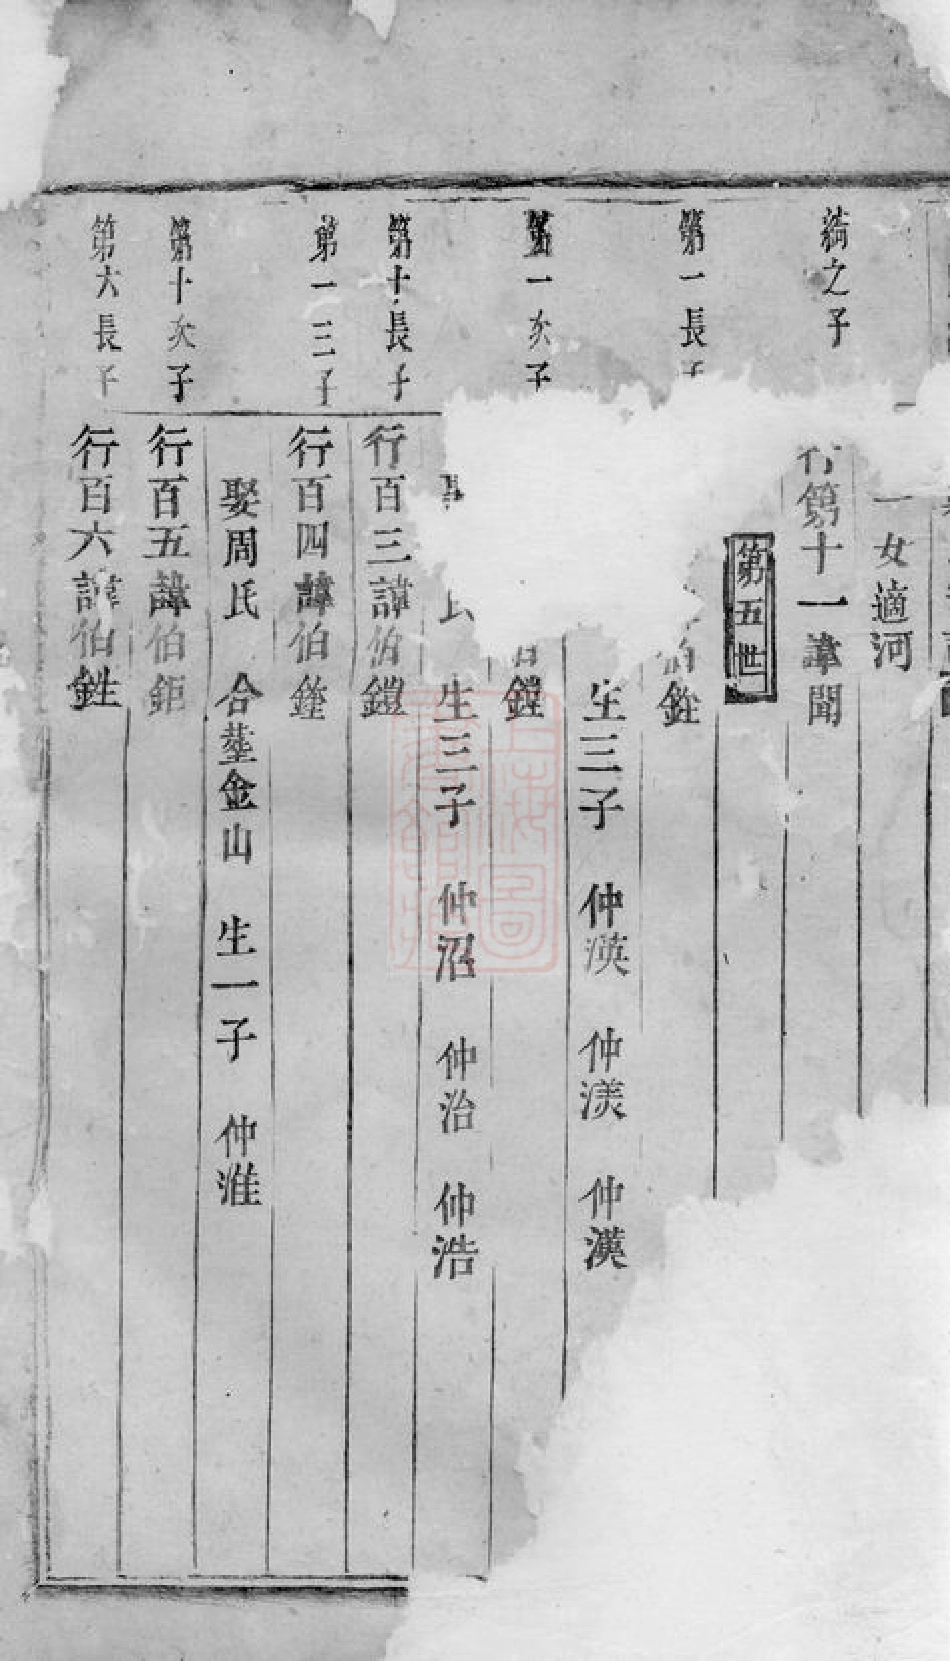 一女適河
綺之子
行第十一諱聞
第五世
第一長子
伯銓
生三子 仲渶 仲渼 仲漢
第一次子
鏜
氏 生三子 仲沼 仲治 仲浩
第十長子
行百三諱伯鎧
第一三子
行百四諱伯鍾
娶周氏 合塟金山 生一子 仲淮
第十次子
行百五諱伯鉅
第六長子
行百六諱伯鉎
上海圖書館藏